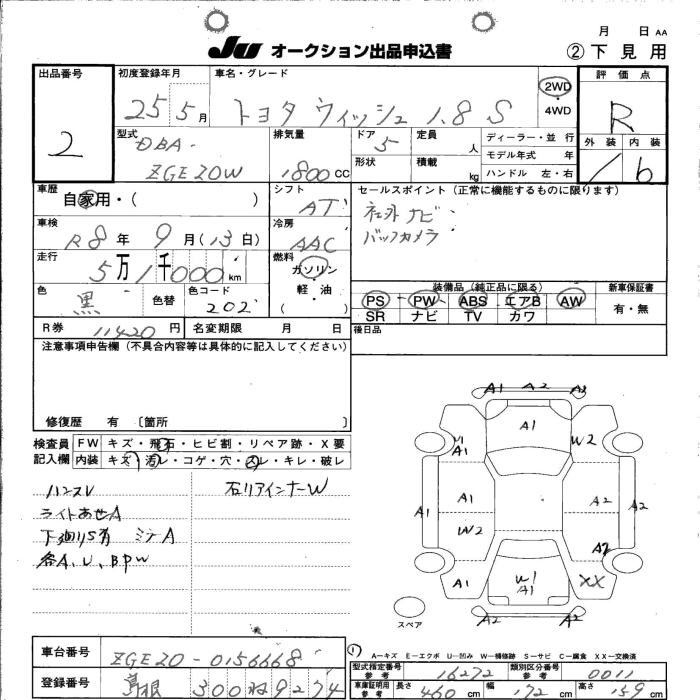 月 日 AA
JU オークション出品申込書 ②下見用
出品番号 2
初度登録年月 25 5月
車名・グレード トヨタ ウィッシュ 1.8 S
2WD
4WD
評価点 R
型式 DBA- ZGE20W
排気量 1800 CC
ドア 5
形状
定員 人
積載 kg
ディーラー・並行
モデル年式 年
ハンドル 左・右
外装 内装
車歴 自家用・( )
シフト AT
セールスポイント(正常に機能するものに限ります)
社外ナビ
バックカメラ
車検 R8年 9月(13日)
冷房 AAC
走行 5万1千000km
燃料 ガソリン
軽・油
( )
色 黒 色替 色コード 202
装備品(純正品に限る) 新車保証書
PS PW ABS エアB AW 有・無
SR ナビ TV カワ
R券 11420円 名変期限 月 日
後日品
注意事項申告欄(不具合内容等は具体的に記入してください)
修復歴 有 〔箇所 〕
検査員 FW キズ・飛石・ヒビ割・リペア跡・X要
記入欄 内装 キズ・汚レ・コゲ・穴・スレ・キレ・破レ
ハンスレ 石リアインナーW
ライトあせA
各A、U、BPW
A1 A2 A2
A1
A1 W2
A1 A1 A2 A2
W2
A2
A1 W1 XX
A1
A2 A2
スペア
A-キズ E-エクボ U-凹み W-補修跡 S-サビ C-腐食 XX-交換済
車台番号 ZGE20-0156668
型式指定番号 参考 16272 類別区分番号 参考 0011
登録番号 島根 300 ね 9274
車庫証明用 参考 長さ 460 cm 幅 172 cm 高さ 159 cm